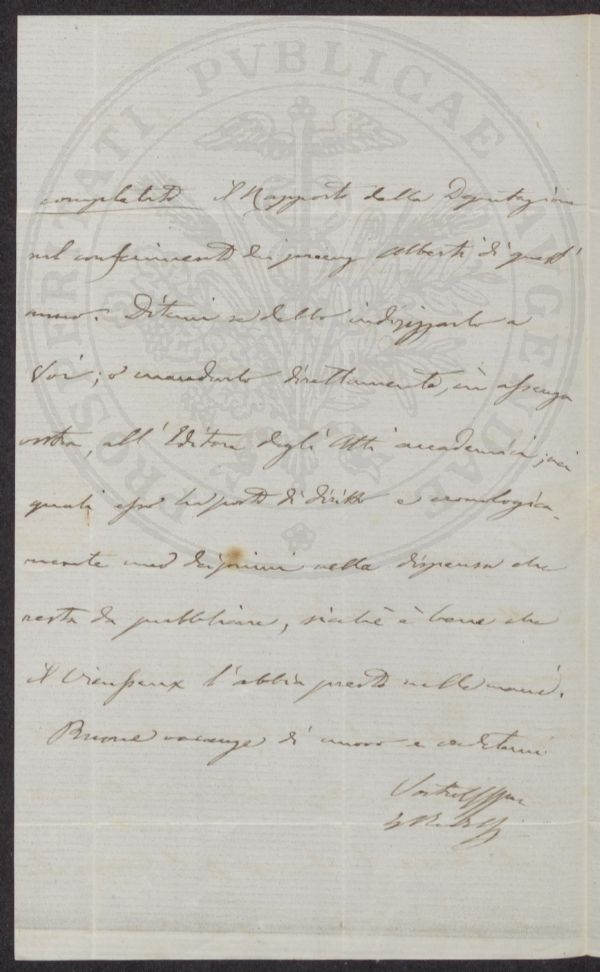 PROSPERITATI PVBLICAE AVGENDAE
completato il Rapporto della Deputazione
sul conferimento dei premj Alberti di quest'
anno. Ditemi se debbo indirizzarlo a
Voi; o mandarlo direttamente, in assenza
vostra, all'Editore degli Atti accademici, nei
quali esso ha posto di diritto e cronologica-
mente uno dei primi nella dispensa che
resta da pubblicare, sicchè è bene che
il Vieusseux l'abbia presto nelle mani.
Buone vacanze di nuovo e credetemi
Vostro
Ridolfi